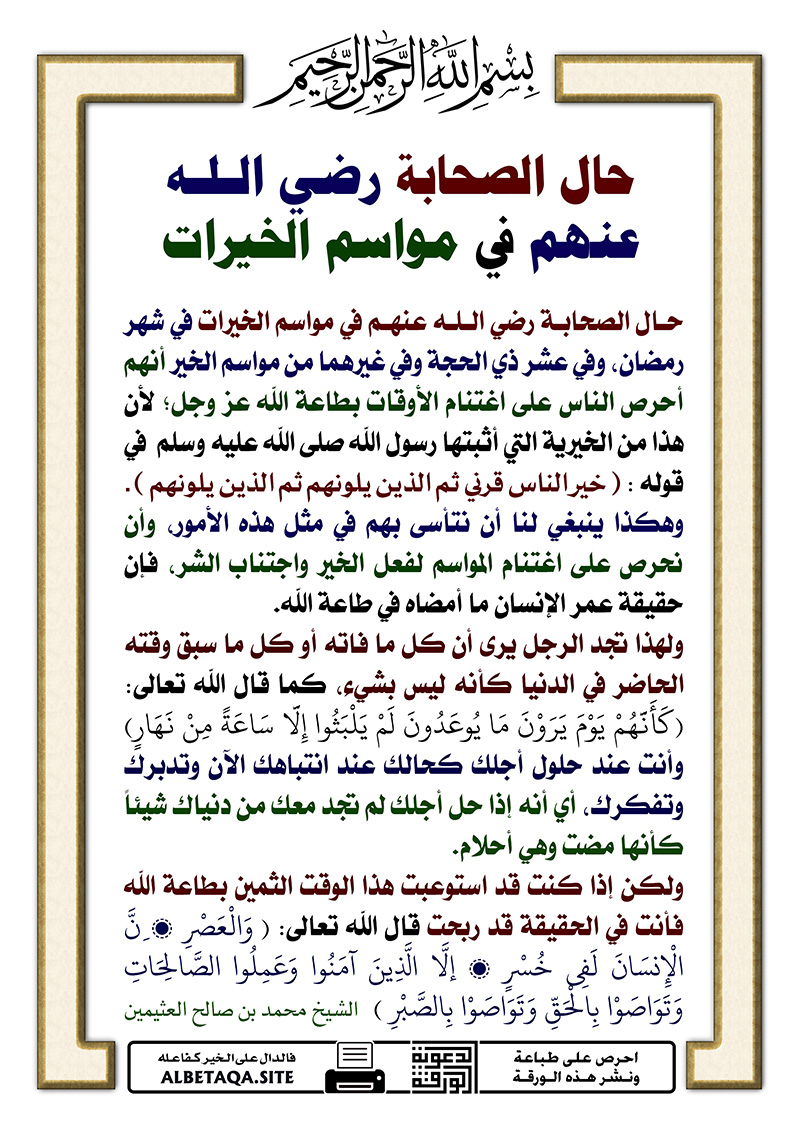 بِسْمِ اللَّهِ الرَّحْمَنِ الرَّحِيمِ
حال الصحابة رضي الله
عنهم في مواسم الخيرات
حال الصحابة رضي الله عنهم في مواسم الخيرات في شهر
رمضان، وفي عشر ذي الحجة وفي غيرهما من مواسم الخير أنهم
أحرص الناس على اغتنام الأوقات بطاعة الله عز وجل؛ لأن
هذا من الخيرية التي أثبتها رسول الله صلى الله عليه وسلم في
قوله : ( خير الناس قرني ثم الذين يلونهم ثم الذين يلونهم ).
وهكذا ينبغي لنا أن نتأسى بهم في مثل هذه الأمور، وأن
نحرص على اغتنام المواسم لفعل الخير واجتناب الشر، فإن
حقيقة عمر الإنسان ما أمضاه في طاعة الله.
ولهذا تجد الرجل يرى أن كل ما فاته أو كل ما سبق وقته
الحاضر في الدنيا كأنه ليس بشيء، كما قال الله تعالى:
(كَأَنَّهُمْ يَوْمَ يَرَوْنَ مَا يُوعَدُونَ لَمْ يَلْبَثُوا إِلَّا سَاعَةً مِنْ نَهَارٍ)
وأنت عند حلول أجلك كحالك عند انتباهك الآن وتدبرك
وتفكرك، أي أنه إذا حل أجلك لم تجد معك من دنياك شيئاً
كأنها مضت وهي أحلام.
ولكن إذا كنت قد استوعبت هذا الوقت الثمين بطاعة الله
فأنت في الحقيقة قد ربحت قال الله تعالى: ( وَالْعَصْرِ ۞ ِنَّ
الْإِنسَانَ لَفِي خُسْرٍ ۞ إلَّا الَّذِينَ آمَنُوا وَعَمِلُوا الصَّالِحَاتِ
وَتَوَاصَوْا بِالْحَقِّ وَتَوَاصَوْا بِالصَّبْرِ ) الشيخ محمد بن صالح العثيمين
احرص على طباعة
ونشر هذه الورقة
الورقة الدعوية
فالدال على الخير كفاعله
ALBETAQA.SITE